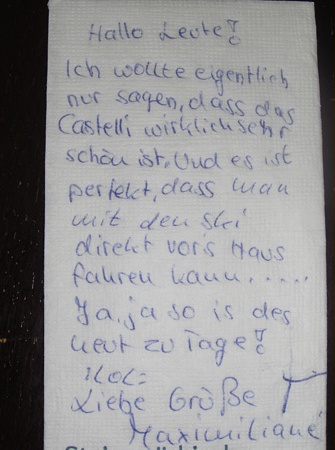 Hallo Leute!
Ich wollte eigentlich
nur sagen, dass das
Castelli wirklich sehr
schön ist. Und es ist
perfekt, dass man
mit den Ski
direkt vor's Haus
fahren kann.....
Ja, ja so is des
heut zu Tage!
Liebe Grüße
Maximiliane